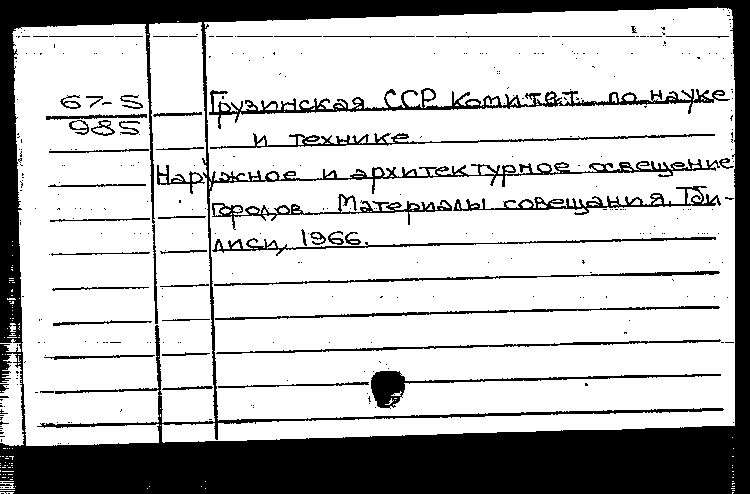 67-5
985
Грузинская ССР Комитет по науке
и технике
Наружное и архитектурное освещение
городов Материалы совещания. Тби-
лиси, 1966.